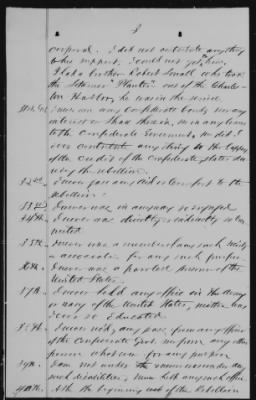 3
corporal. I did not contribute anything
to his support. I could not get him,
I had a brother Robert Small who took
the Steamer "Planter" out of the Charles-
ton Harbor, he was in the service
31st. I never own any Confederate bonds nor any
interest or share therein, nor in any loan
to the Confederate Government, nor did I
ever contribute anything to the support
of the credit of the Confederate States du-
ring the rebellion.
32nd. I never gave any aid or comfort to the
rebellion.
33rd. I never was in anyway so engaged
34th. I never was directly or indirectly so con-
nected
35th. I never was a member of any such society
or association for any such purpose.
36th. I never was a paroled prisoner of the
United States.
37th. I never held any office in the Army
or navy of the United States, neither was
I ever so Educated
38th. I never rec'd, any pass from any officer
of the Confederate Govt. nor from any other
person whatsoever for any purpose
39th. I am not under the
such disabilities, never held any such office
40th. At the beginning of the Rebellion